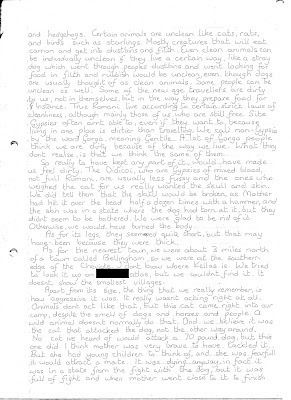 and hedgehogs. Certain animals are unclean like cats, rats,
and birds such as starlings. Mostly creatures that will eat
carrion and get into dustbins and filth. Even clean animals can
be individually unclean if they live a certain way, like a stray
dog which went through peoples dustbins and went looking for
food in filth and rubbish would be unclean, even though dogs
are usually thought of as clean animals. Some people can be
unclean as well. Some of the new age travellers are dirty
to us, not in themselves, but in the way they prepare food for
instance. True Romani live according to certain strict laws of
cleanliness, although mainly those of us who are still free. Some
Gypsies often aint able to, even if they want to, because
living in one place is dirtier than travelling. We call non-gypsies
by the word Gorgo, meaning Gentile. A lot of Gorgo people
think we are dirty because of the way we live. What they
dont realise, is that we think the same of them.
So really to have kept any part of it, would have made
us feel dirty. The Didicoi, who are Gypsies of mixed blood,
not full Romani, are usually less fussy and the ones who
weighed the cat for us really wanted the skull and skin.
We did tell them that the skull would be broken, as Mother
had hit it over the head half a dozen times with a hammer, and
the skin was in a state where the dog had torn at it, but they
didnt seem to be bothered. We were glad to be rid of it.
Otherwise, we would have burned the body.
As for its legs, they seemed quite short, but that may
have been because they were thick.
As for the nearest town, we were about 3 miles north
of a town called Bellingham, so we were at the southern
edge of the Cheviots. I dont know where Keilas is. We tried
to look it up on atlas, but we couldnt find it. It
doesnt show the smallest villages.
Apart from its size, the thing that we really remember, is
how aggressive it was. It really wasnt acting right at all.
Animals dont act like that, but this cat came right into our
camp, despite the smell of dogs and horses and people. A
wild animal doesnt normally do that. Dad we believe it was
the cat that attacked the dog, not the other way around.
No cat we heard of would attack a 70 pound dog, but this
one did. I think mother was very brave to have tackled it.
But she had young children to think of, and she was fearful
it would attack a mate. It was dying anyway, in fact it
was in a state from the fight with the dog, but it was
full of fight and when mother went close to it to finish